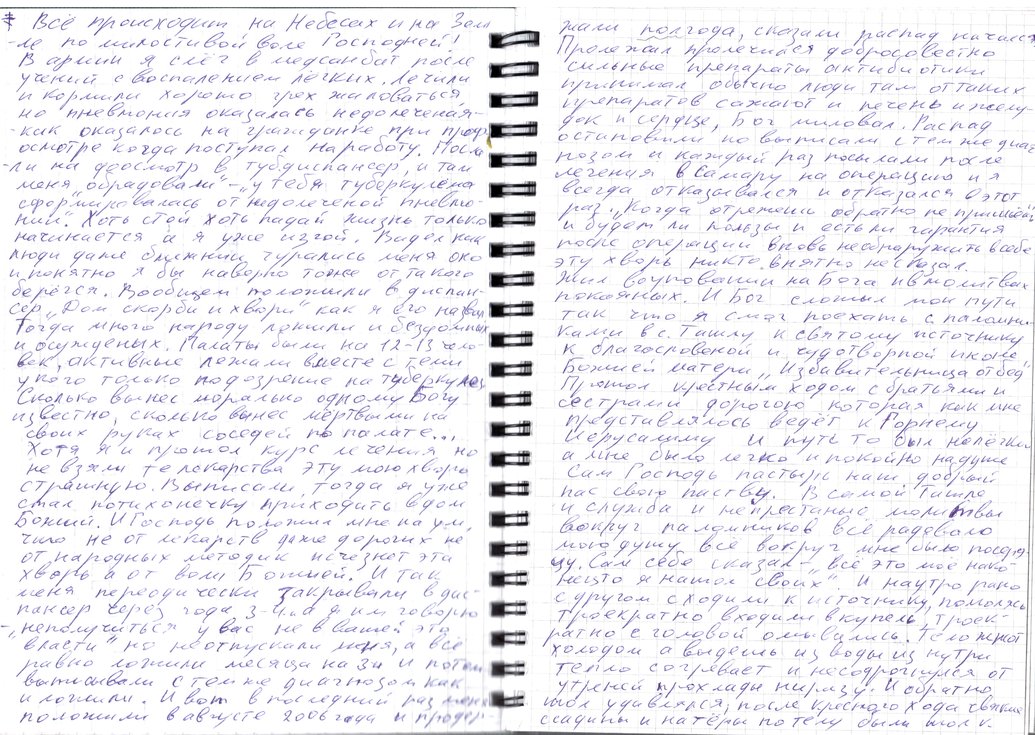 * Всё происходит на Небесах и на Зем
-ле по милостивой воле Господней!
В армии я слёг в медсанбат после
учений с воспалением лёгких. Лечили
и кормили хорошо грех жаловаться
но пневмония оказалась недолеченая-
-как оказалось на гражданке при проф
осмотре когда поступал на работу. Посла
-ли на доосмотр в тубдиспансер, и там
меня „обрадовали" – „у тебя туберкулёма
сформировалась от недолеченой пневмо-
нии". Хоть стой хоть падай жизнь только
начинается а я уже изгой. Видел как
люди даже ближнии чурались меня оно
и понятно я бы наверно тоже от такого
берёгся. Вообщем положили в диспан-
сер „Дом скорби и хвори" как я его назвал
Тогда много народу лежили и бездомных
и осуженых. Палаты были на 12-13 чело-
век, активные лежали вместе с теми
у кого только подозрение на туберкулёз
Сколько вынес морально одному Богу
известно, сколько вынес мёртвыми на
своих руках соседей по палате...
Хотя я и прошол курс лечения но
не взяли те лекарства эту мою хворь
страшную. Выписали, тогда я уже
стал потихонечку приходить в дом
Божий. И Господь положил мне на ум,
что не от лекарств даже дорогих не
от народных методик исчезнет эта
хворь а от воли Божией. И так
меня переодически закрывали в дис-
пансер через года 3-4 и я им говорю
-„неполучиться у вас не в вашей это
власти" но неотпускали меня, а всё
равно ложили месяца на 3и и потом
выписывали с томже диагнозом как
и ложили. И вот в последний раз меня
положили в августе 2006 года и продер-
жали полгода, сказали распад начался
Пролежал пролечился добросовестно
сильные препараты антибиотики
принимал обычно люди там от таких
препаратов сажают и печень и желу
док и сердце, Бог миловал. Распад
остановили но выписали с темже диаг
нозом и каждый раз посылали после
лечения в Самару на операцию и я
всегда отказывался и отказался в этот
раз. „Когда отрежеш обратно не пришьёш"
и будет ли польза и есть ли гарантия
после операции вновь необнаружить в себе
эту хворь никто внятно несказал.
Жил в уповании на Бога и в молитвах
покаянных. И Бог сложил мои пути
так что я смог поехать с паломни
ками в с. Ташлу к святому источнику
к благословеной и чудотворной иконе
Божией матери „Избавительница от бед"
Прошол крестным ходом с братьями и
сестрами дорогою которая как мне
представлялось ведёт к Горнему
Иерусалиму и путь то был нелёгкий
а мне было легко и покойно на душе
Сам Господь пастырь наш добрый
пас свою паству. В самой Ташле
и служба и непрестаные молитвы
вокруг паломников всё радовало
мою душу всё вокруг мне было по серд-
цу. Сам себе сказал – „всё это моё нако-
нецто я нашол своих". И наутро рано
с другом сходили к источнику, помолясь
троекратно входили в купель, троек-
ратно с головой омывались. Тело жгло
холодом а выдешь из воды из нутри
тепло согревает и несодрогнулся от
утреней прохлады ниразу. И обратно
шол удивлялся, после кресного хода свежие
ссадины и натёры по телу были шол к